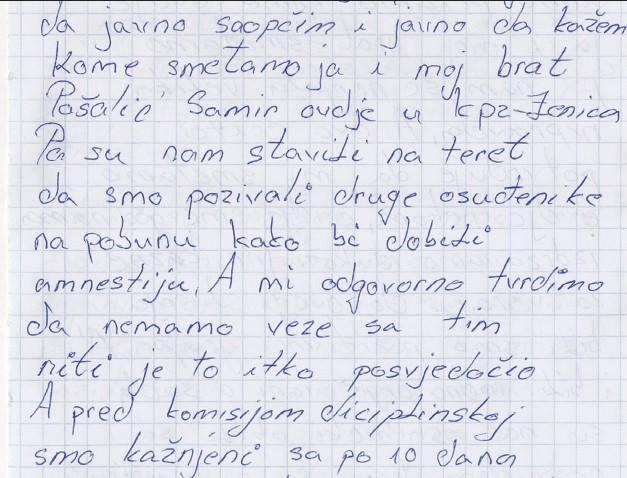 da javno saopčim i javno da kažem
Kome smetamo ja i moj brat
Pašalić Samir ovdje u kpz-Zenica
Pa su nam staviti na teret
da smo pozivali druge osuđenike
na pobunu kako bi dobiti
amnestiju, A mi odgovorno tvrdimo
da nemamo veze sa tim
niti je to itko posvjedočio
A pred komisijom diciplinskoj
smo kažnjeni sa po 10 dana